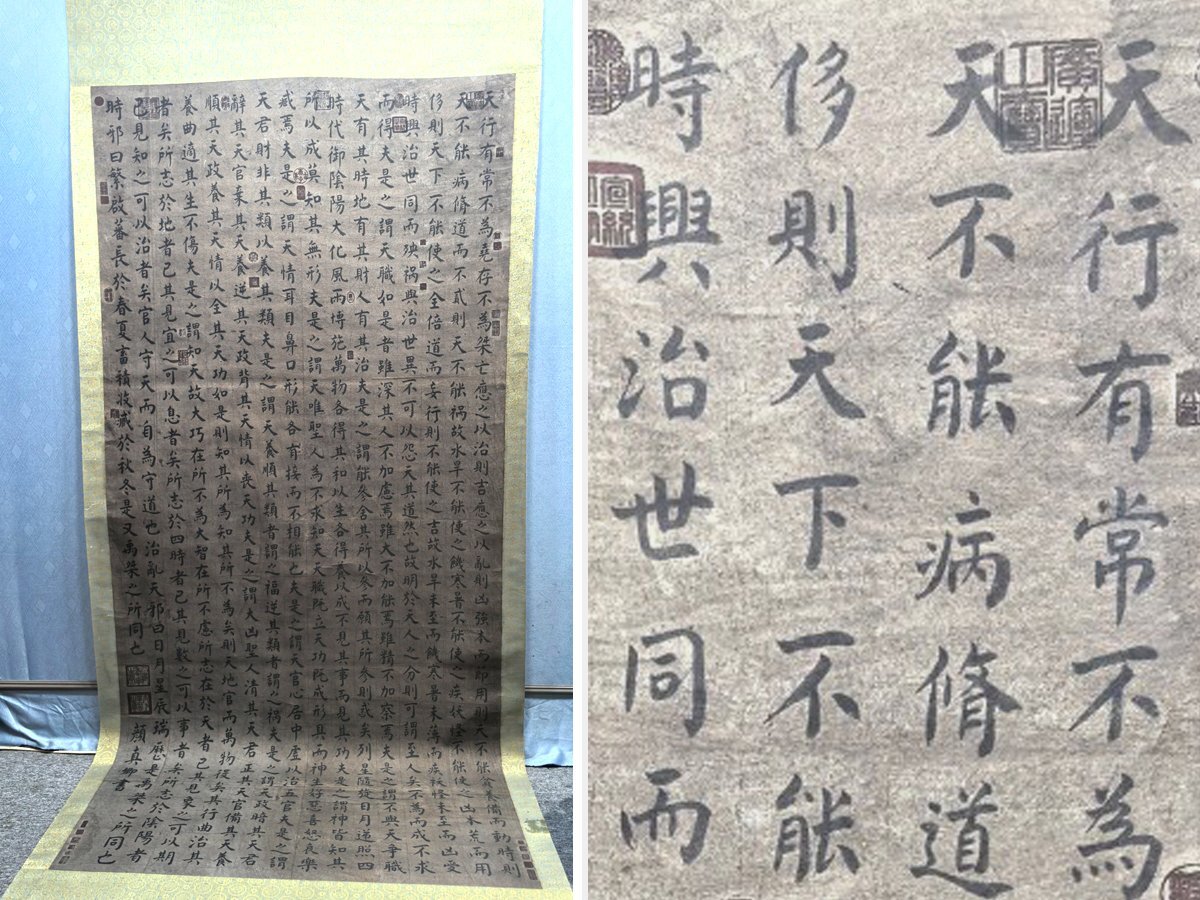 天行有常不為堯存不為桀亡應之以治則吉應之以亂則凶強本而節用則天不能貧養備而動時則
天不能病脩道而不貳則天不能禍故水旱不能使之飢寒暑不能使之疾妖怪不能使之凶本荒而用
侈則天下不能使之全倍道而妄行則不能使之吉故水旱未至而飢寒暑未薄而疾妖怪未至而凶受
時興治世同而殃禍與治世異不可以怨天其道然也故明於天人之分則可謂至人矣不為而成不求
而得夫是之謂天職如是者雖深其人不加慮焉雖大不加能焉雖精不加察焉夫是之謂不與天爭職
天有其時地有其財人有其治夫是之謂能參舍其所以參而願其所參則惑矣列星隨旋日月遞照四
時代御陰陽大化風雨博施萬物各得其和以生各得養以成不見其事而見其功夫是之謂神皆知其
所以成莫知其無形夫是之謂天唯聖人為不求知天天職既立天功既成形具而神生好惡喜怒哀樂
臧焉夫是之謂天情耳目鼻口形能各有接而不相能也夫是之謂天官心居中虛以治五官夫是之謂
天君財非其類以養其類夫是之謂天養順其類者謂之福逆其類者謂之禍夫是之謂天政時其天君
辭其天官棄其天養逆其天政背其天情以喪天功夫是之謂大凶聖人清其天君正其天官備其天養
順其天政養其天情以全其天功如是則知其所為知其所不為矣則天地官而萬物役矣其行曲治其
養曲適其生不傷夫是之謂知天故大巧在所不為大智在所不慮所志在於天者已其見象之可以期
者矣所志於地者已其見宜之可以息者矣所志於四時者已其見數之可以事者矣所志於陰陽者
已見知之可以治者矣官人守天而自為守道也治亂天邪曰日月星辰瑞曆是禹桀之所同也
時邪曰繁啟蕃長於春夏畜積收臧於秋冬是又禹桀之所同也
顏真卿書
天行有常不為
天不能病脩道
侈則天下不能
時興治世同而